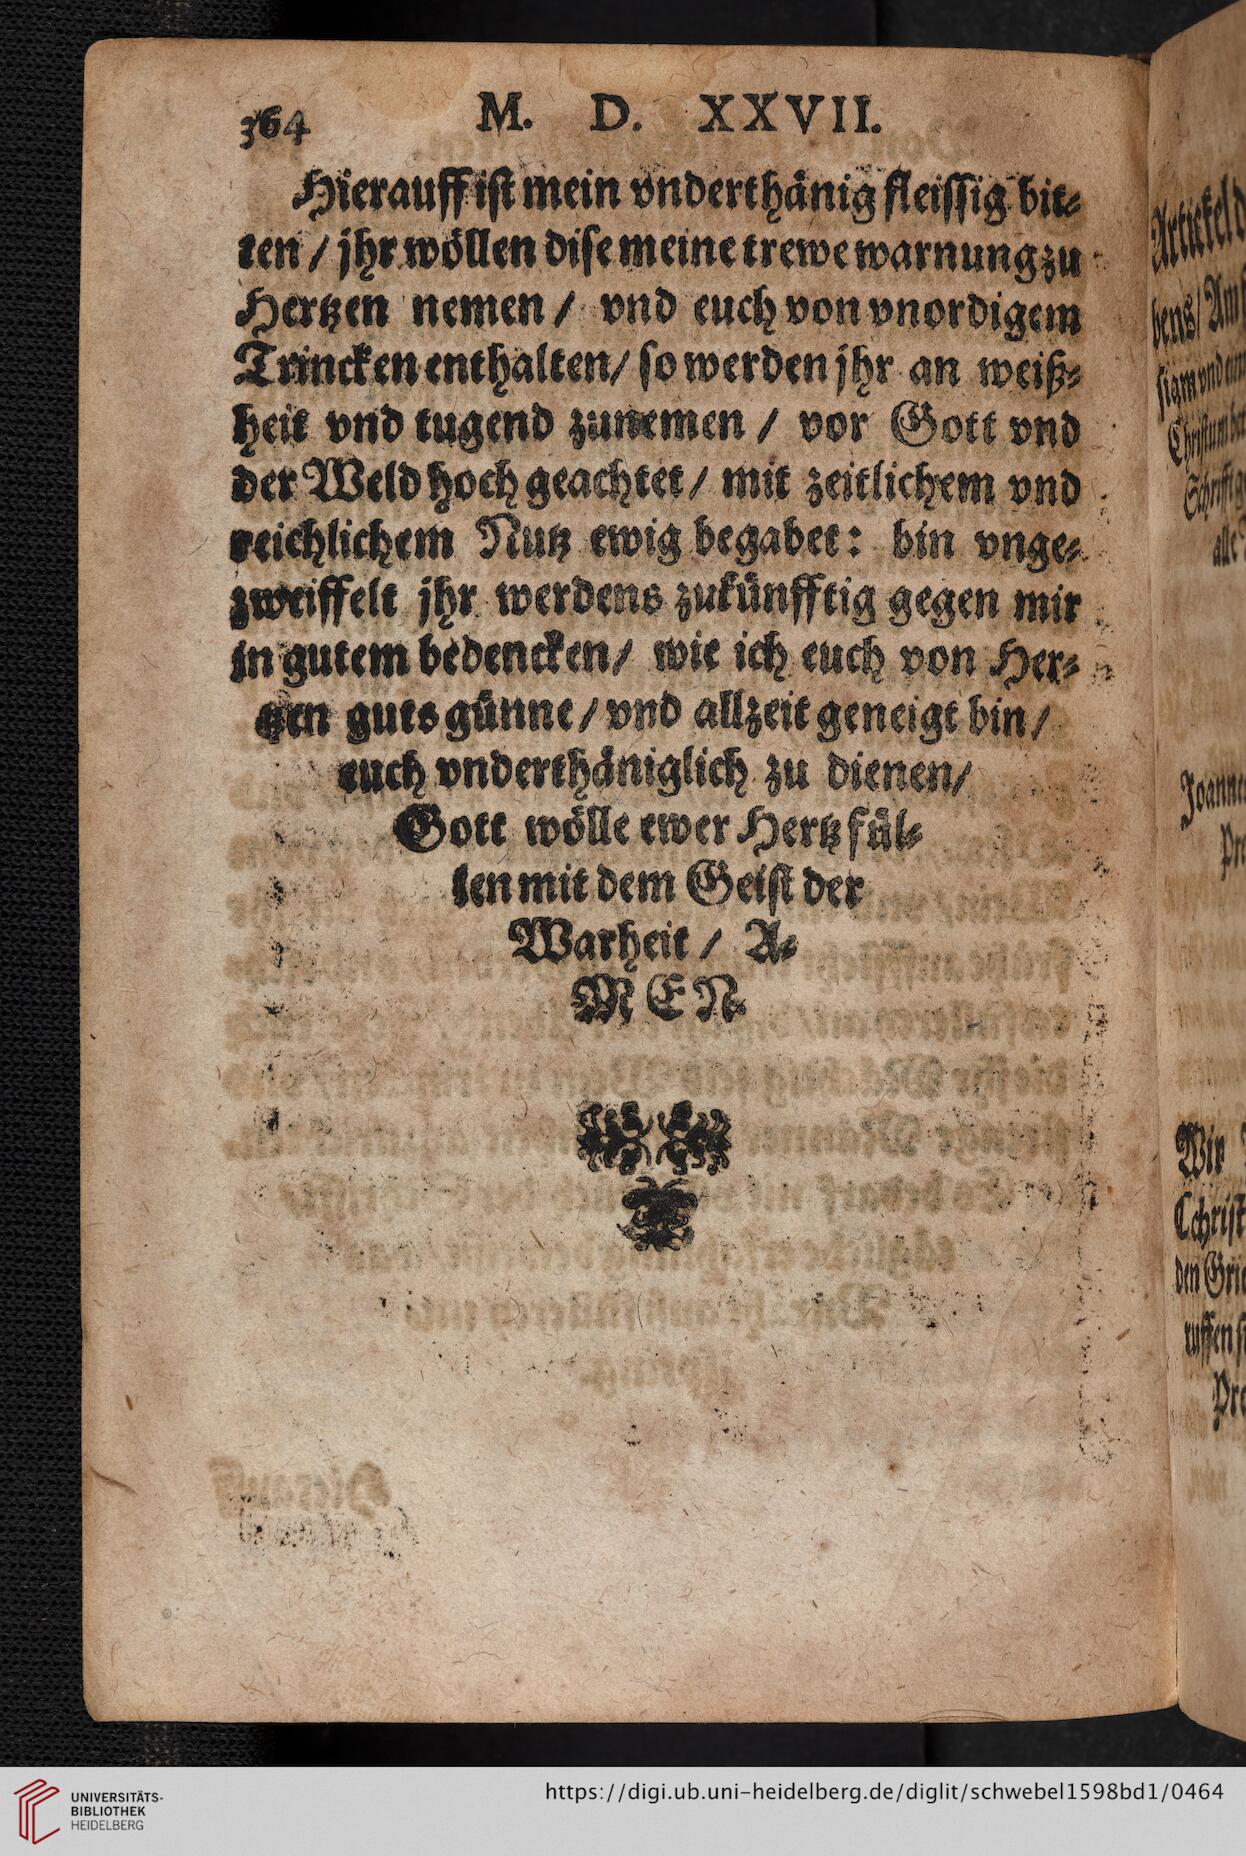 364 M. D. XXVII.
Hierauff ist mein vnderthänig fleissig bit-
ten / jhr wöllen dise meine trewe warnung zu
Hertzen nemen / vnd euch von vnordigem
Trincken enthalten / so werden jhr an weiß-
heit vnd tugend zunemen / vor Gott vnd
der Weld hoch geachtet / mit zeitlichem vnd
reichlichem Nutz ewig begabet: bin vnge-
zweiffelt jhr werdens zukünfftig gegen mir
in gutem bedencken / wie ich euch von Her-
tzen guts günne / vnd allzeit geneigt bin /
euch vnderthäniglich zu dienen /
Gott wölle ewer Hertz fül-
len mit dem Geist der
Warheit / A-
MEN.
Artickel d
bens / Am
Christum
Schrifft
alle
Joannes
Pre
Wir
Cchrist
den Grie
ruffen
Pre
UNIVERSITÄTS-
BIBLIOTHEK
HEIDELBERG
https://digi.ub.uni-heidelberg.de/diglit/schwebel1598bd1/0464